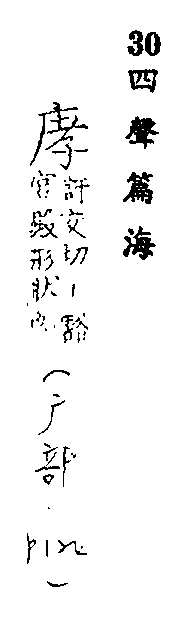 30 四聲篇海
許交切丨豁
宮殿形狀
(广部.